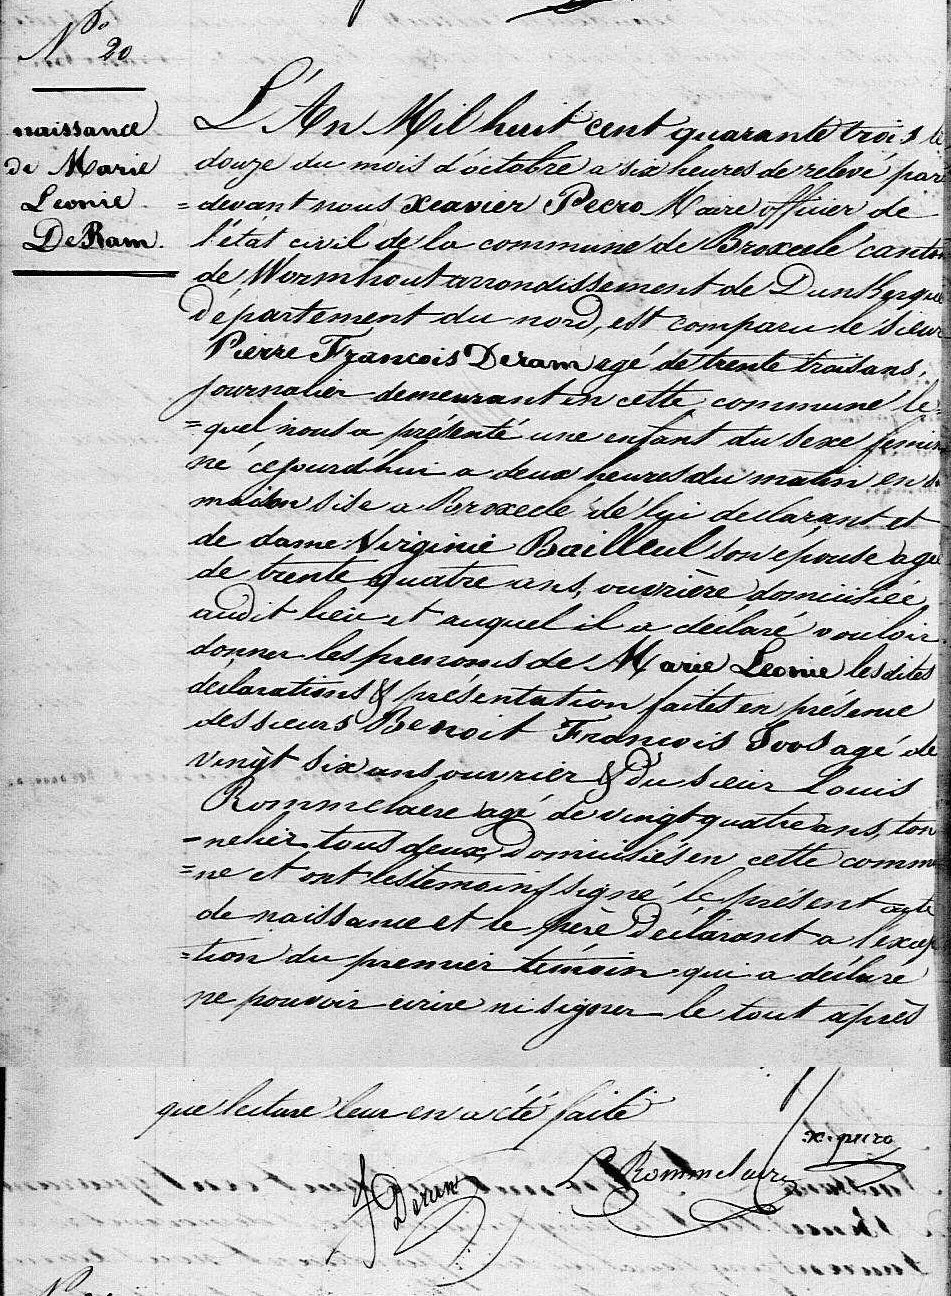 No 20
naissance
de Marie
Leonie
DeRam.
L'An Mil huit cent quarante trois le
douze du mois d'octobre a six heures de relevé par
=devant nous Xeavier Pecro Maire officier de
l'état civil de la commune de Broxeele canton
de Wormhout arrondissement de Dunkerque
département du nord, est comparu le sieur
Pierre Francois Deram agé de trente trois ans,
journalier demeurant en cette commune le
=quel nous a présenté une enfant du sexe femin
né cejourd'hui a deux heures du matin en sa
maison sise a Broxeele de lui declarant et
de dame Virginie Bailleul son épouse agée
de trente quatre ans, ouvrière domiciliée
audit lieu et auquel il a déclaré vouloir
donner les prenoms de Marie Leonie les dites
déclarations & présentation faites en présence
des sieurs Benoit Francois Soos agé de
vingt six ans ouvrier & du sieur Louis
Rommelaere agé de vingt quatre ans, ton
=nelier tous deux Domiciliés en cette commu
=ne et ont les temoins signé le présent acte
de naissance et le père Déclarant a l'excep
=tion du premier témoin qui a déclaré
ne pouvoir écrire ni signer le tout après
que lecture leur en a été faite
x. pecro
Deram
L Rommelaere